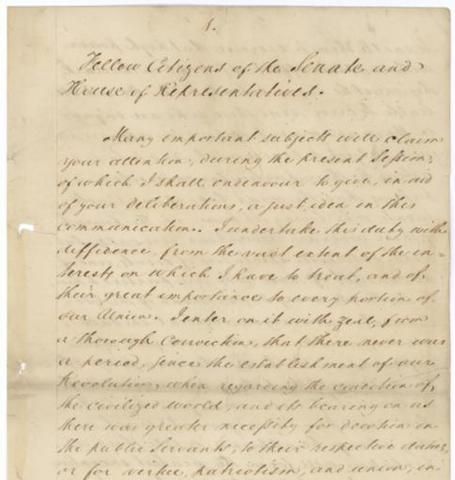 1.
Fellow Citizens of the Senate and
House of Representatives.
Many important subjects will claim
your attention, during the present Session,
of which I shall endeavour to give, in aid
of your deliberations, a just idea in this
communication. I undertake this duty with
diffidence, from the vast extent of the in-
terests on which I have to treat, and of
their great importance to every portion of
our Union. I enter on it with zeal, from
a thorough Conviction, that there never was
a period, since the establishment of our
Revolution, when regarding the condition of
the civilized world, and its bearing on us
there was greater necessity for devotion in
the public Servants, to their respective duties,
or for virtue, patriotism, and union, in